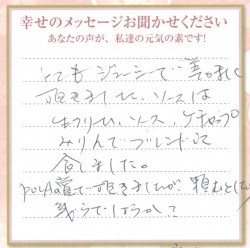 幸せのメッセージお聞かせください
あなたの声が、私達の元気の素です!
とてもジューシーで美味しく
頂きました。ソースは
ソース、ケチャップ
みりんでブレンドして
食しました。
で頂きましたが 頼むとしたら
幾らでしょうか?